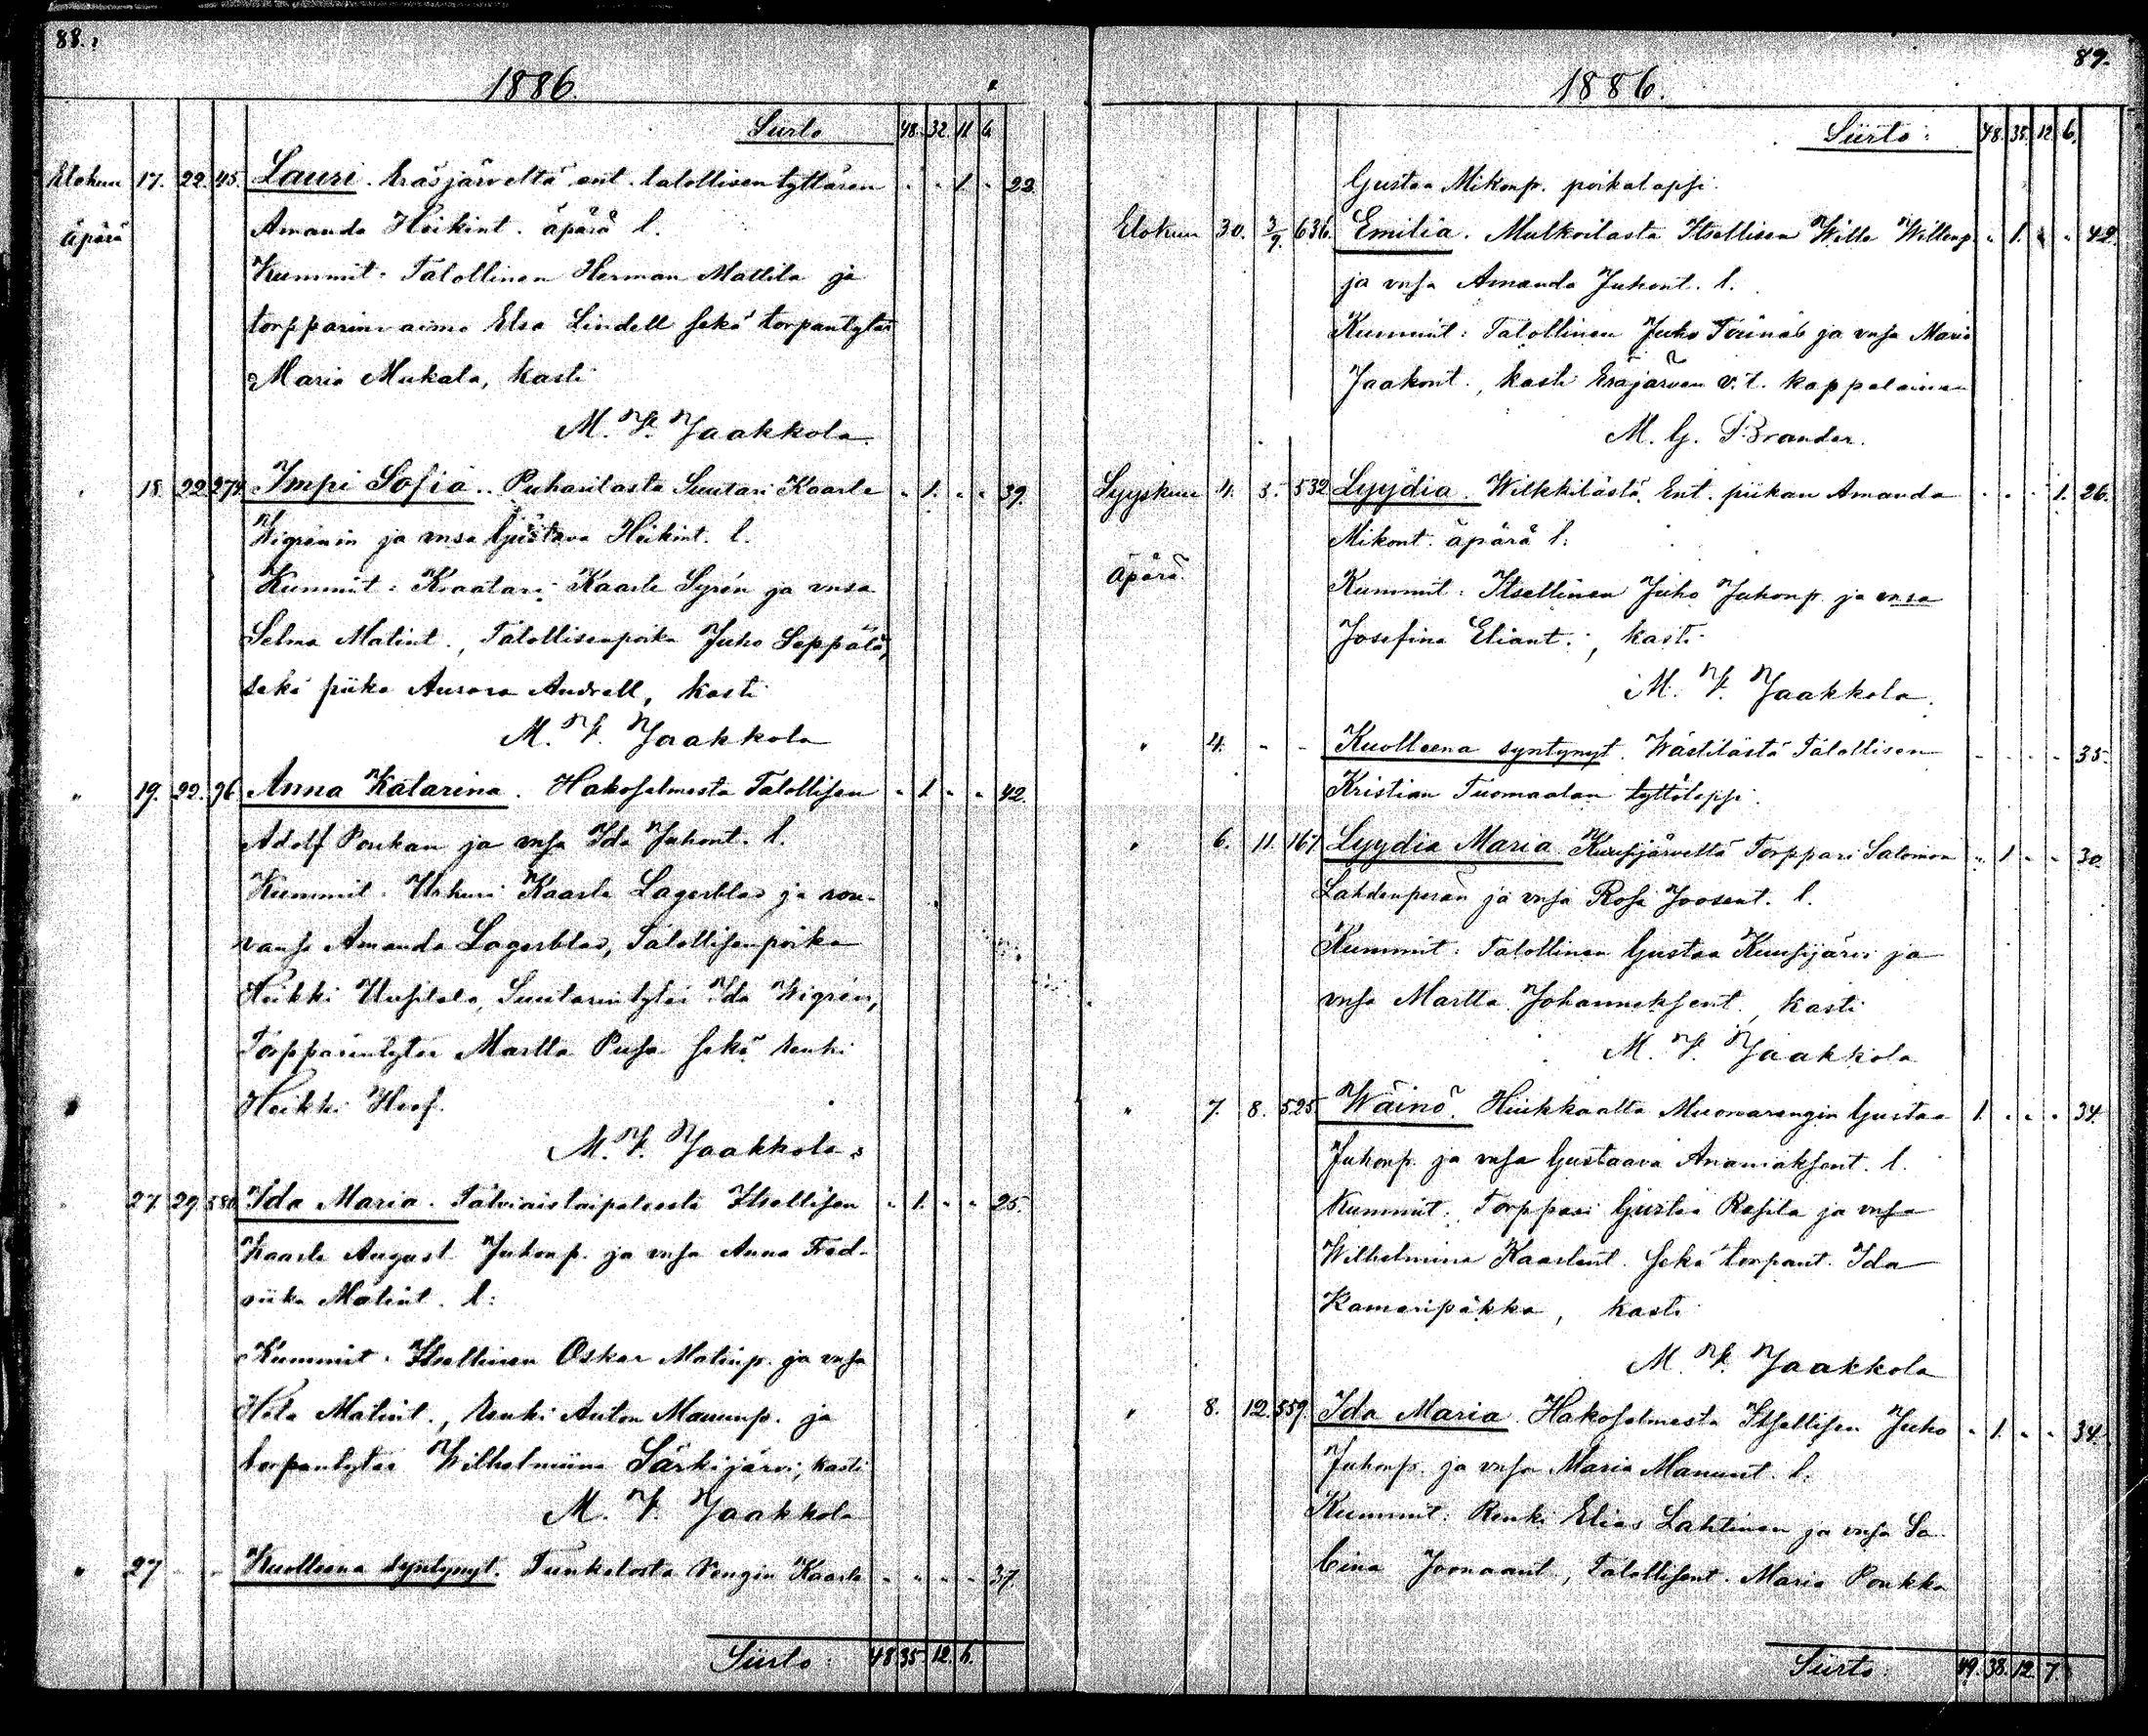 88.
1886.
Siirto 48. 32. 11. 6.
Elokuu 17. 22. 45. Lauri. Eräsjärveltä ent. talollisen tyttären . . 1. . 22.
äpärä Amanda Heikint. äpärä l.
Kummit: Talollinen Herman Mattila ja
torpparin vaimo Elsa Lindell sekä torpantytär
Maria Mukala, kasti
M. F. Jaakkola.
18. 22. 274. Impi Sofia. Puharilasta Suutari Kaarle . 1. . . 39.
Wigrenin ja vmsa Gustava Heikint. l.
Kummit: Kraatari Kaarle Syrén ja vmsa
Selma Matint., Talollisenpoika Juho Seppälä,
sekä piika Aurora Andrell, kasti
M. F. Jaakkola
" 19. 22. 96. Anna Katarina. Hakosalmesta Talollisen . 1. . . 42.
Adolf Poukan ja vmsa Ida Juhont. l.
Kummit. Urkuri Kaarle Lagerblad ja rou-
vansa Amanda Lagerblad, Talollisenpoika
Heikki Uusitalo, Suutarintytär Ida Wigrén,
Torpparintytär Martta Pusa sekä renki
Heikki Hoof.
M. F. Jaakkola.
" 27. 29. 580. Ida Maria. Talviaistaipaleesta Itsellisen . 1. . . 25.
Kaarle August Juhonp. ja vmsa Anna Fred-
riika Matint. l:
Kummit. Itsellinen Oskar Matinp. ja vmsa
Heta Matint., renki Anton Mauunp. ja
torpantytär Wilhelmiina Särkijärvi, kasti
M. F. Jaakkola
" 27 - - Kuolleena syntynyt. Tunkelosta Rengin Kaarle . . . . 37.
Siirto: 48 35. 12. 6.
89.
1886.
Siirto: 48. 35. 12. 6.
Gustaa Mikonp. poikalapsi.
Elokuu 30. 3/9. 636. Emilia. Mulkoilasta Itsellisen Wille Willenp. . 1. . . 42.
ja vmsa Amanda Juhont. l.
Kummit: Talollinen Juho Toinas ja vmsa Maria
Jaakont., kasti Eräjärven v.t. kappalainen
M. G. Brander.
Syyskuu 4. 5. 532 Lyydia. Wilkkilästä. Ent. piikan Amanda . . . 1. 26.
Mikont. äpärä l:
äpärä. Kummit: Itsellinen Juho Juhonp. ja vmsa
Josefina Eliant., kasti
M. F. Jaakkola.
" 4. - - Kuolleena syntynyt. Wästilästä Talollisen . . . . 35.
Kristian Tuomaalan tyttölapsi.
" 6. 11. 167. Lyydia Maria. Kuusijärveltä Torppari Salomon . 1. . . 30.
Lahdenperän ja vmsa Rosa Joosent. l.
Kummit: Talollinen Gustaa Kuusijärvi ja
vmsa Martta Johanneksent., kasti
M. F. Jaakkola
" 7. 8. 525. Wäinö. Hiukkaalta Muonarengin Gustaa 1. . . . 34.
Juhonp. ja vmsa Gustaava Ananiaksent. l.
Kummit: Torppari Gustaa Rasila ja vmsa
Wilhelmina Kaarlent. sekä torpant. Ida
Kamaripakka, kasti
M. F. Jaakkola
" 8. 12. 559. Ida Maria. Hakosalmesta Itsellisen Juho . 1. . . 34.
Juhonp. ja vmsa Maria Manunt. l.
Kummit: Renki Elias Lahtinen ja vmsa Sa-
bina Joonaant., Talollisent. Maria Poukka
Siirto: 49. 38. 12. 7.